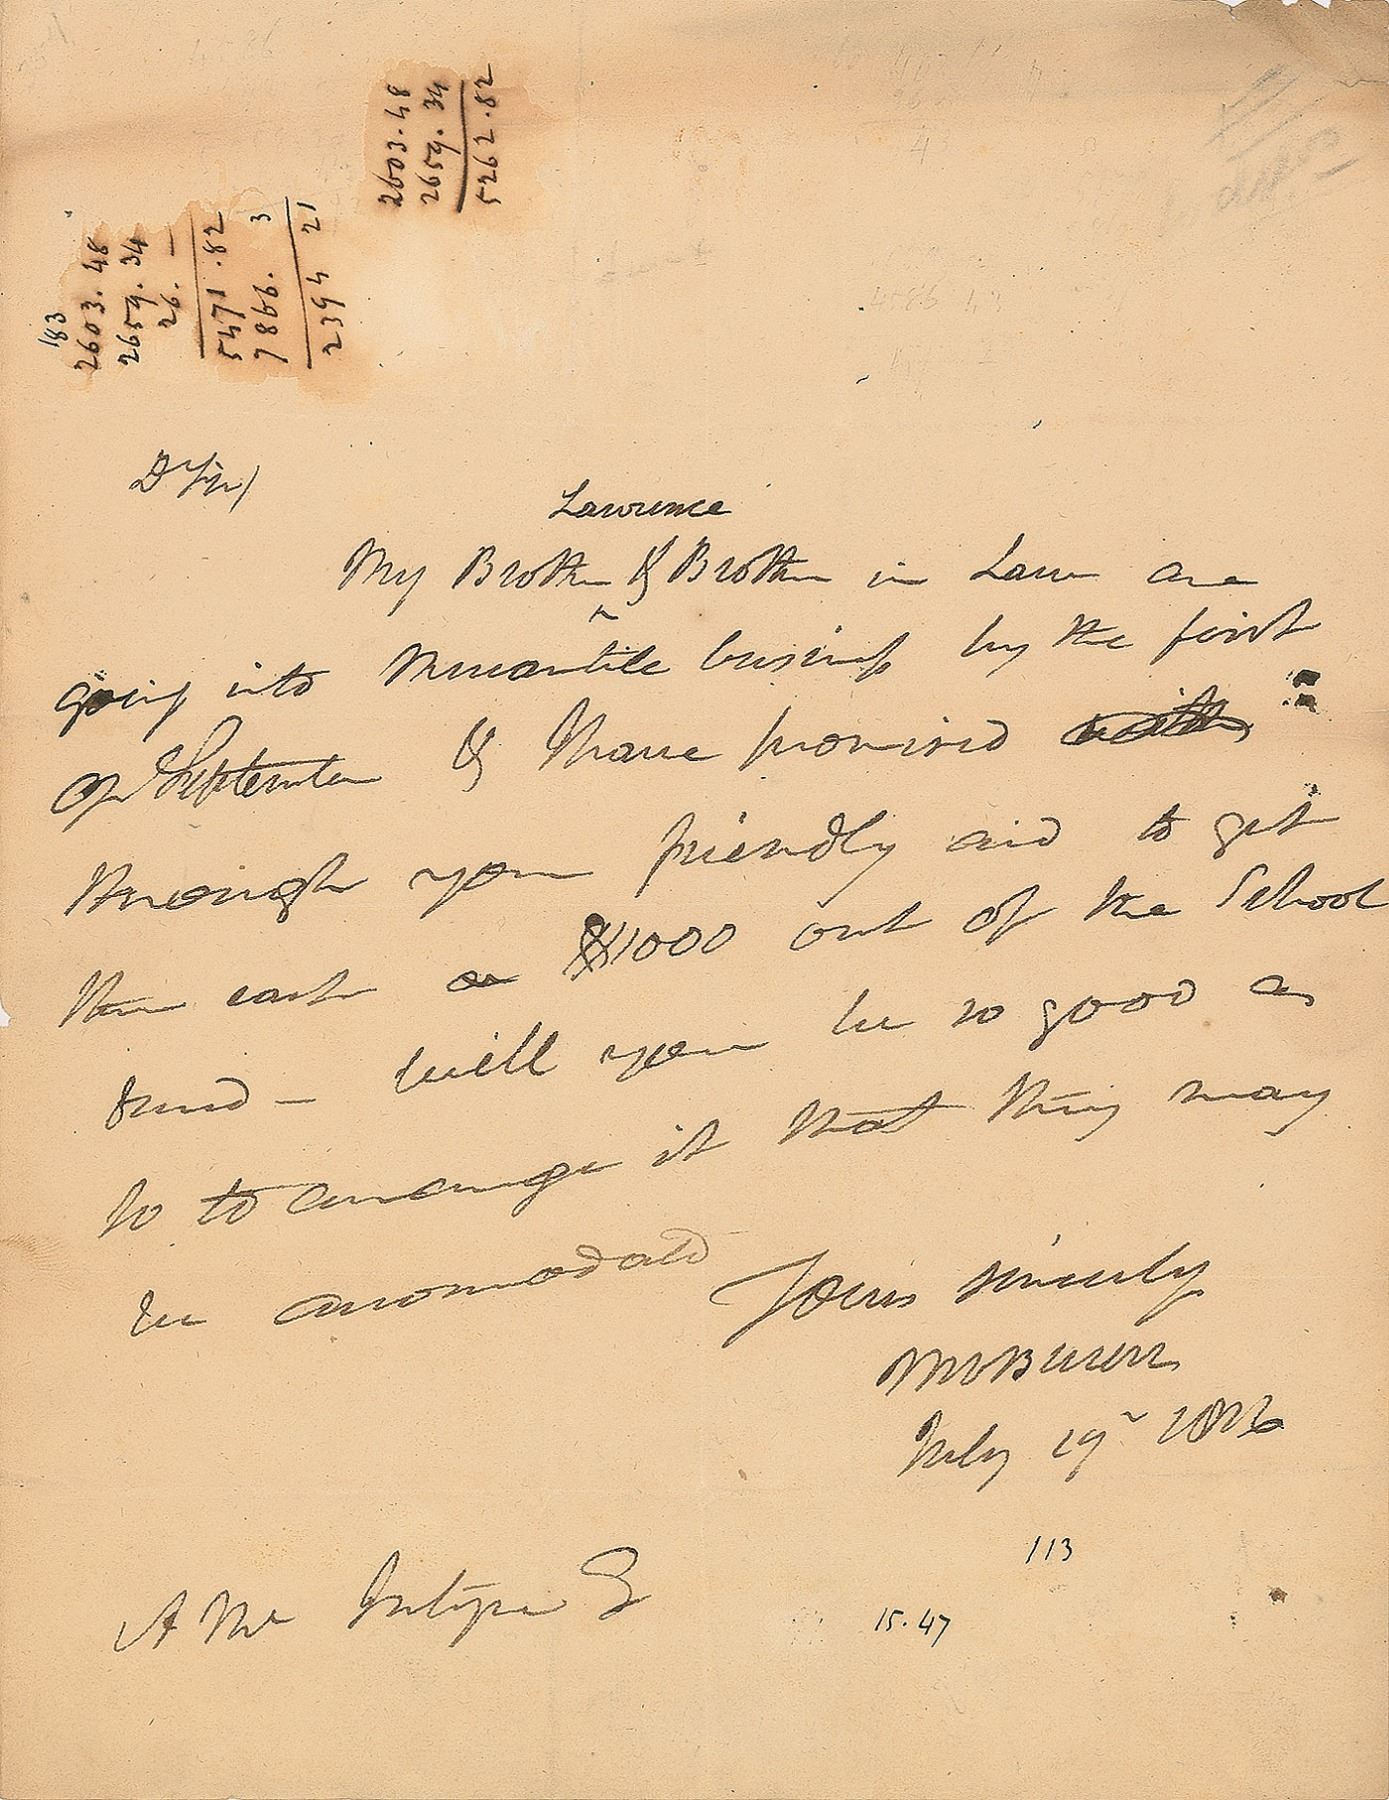 183
2603.48
2659.34
26. —
5471.82
7866. 3
2394 21
2603.48
2659.34
5262.82
D Sir/
Lawrence
My Brother ^ & Brother in Law are
going into Mercantile business by the first
of September & I have promised with
through your friendly aid to get
them each a $1000 out of the School
fund – Will you be so good as
to to arrange it that they may
be accomodated
Yours sincerely
MVBuren
July 19 1816
113
A Mc Intyre E
15.47